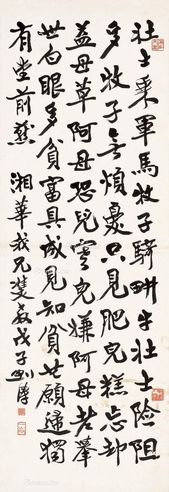 壮士乘軍馬牧子騎畊牛壮士險阻
多牧子無煩憂只見肥兒糕忘却
蓋母草阿母恐兒寒兒嫌阿母老舉
世白眼多貧富具成見知貧世願逢獨
有堂前燕 湘華我兄雙教戊子